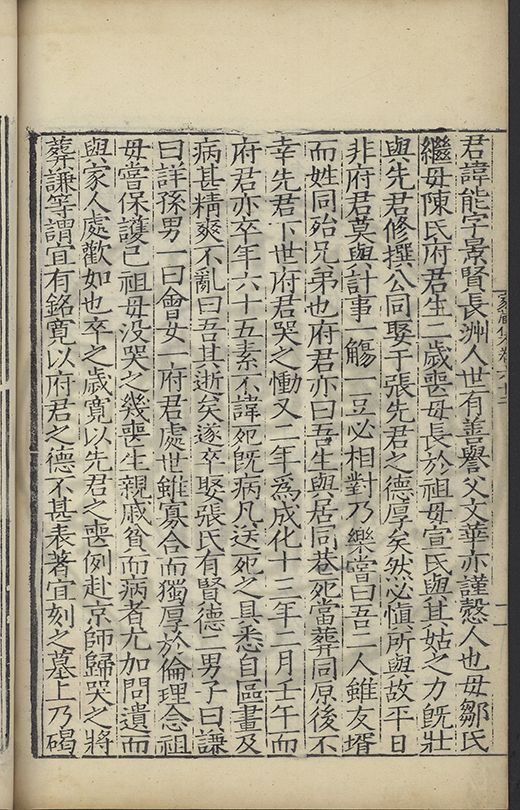 君諱能字景賢長洲人世有善譽父文華亦謹慤人也母鄒氏
繼母陳氏府君生二歲喪母長於祖母宣氏與其姑之力旣壯
與先君修撰公同娶于張先君之德厚矣然必愼所與故平日
非府君莫與計事一觴一豆必相對乃樂嘗曰吾二人雖友壻
而姓同殆兄弟也府君亦曰吾生與居同巷死當葬同原後不
幸先君下世府君哭之慟又二年爲成化十三年二月壬午而
府君亦卒年六十五素不諱死旣病凡送死之具悉自區畫及
病甚精爽不亂曰吾其逝矣遂卒娶張氏有賢德一男子曰謙
曰詳孫男一曰會女一府君處世雖寡合而獨厚於倫理念祖
母嘗保護已祖母没哭之幾喪生親戚貧而病者尤加問遺而
與家人處歡如也卒之歲寬以先君之喪例赴京師歸哭之將
葬謙等謂宜有銘寛以府君之德不甚表著宜刻之墓上乃碣
家藏集卷六十三